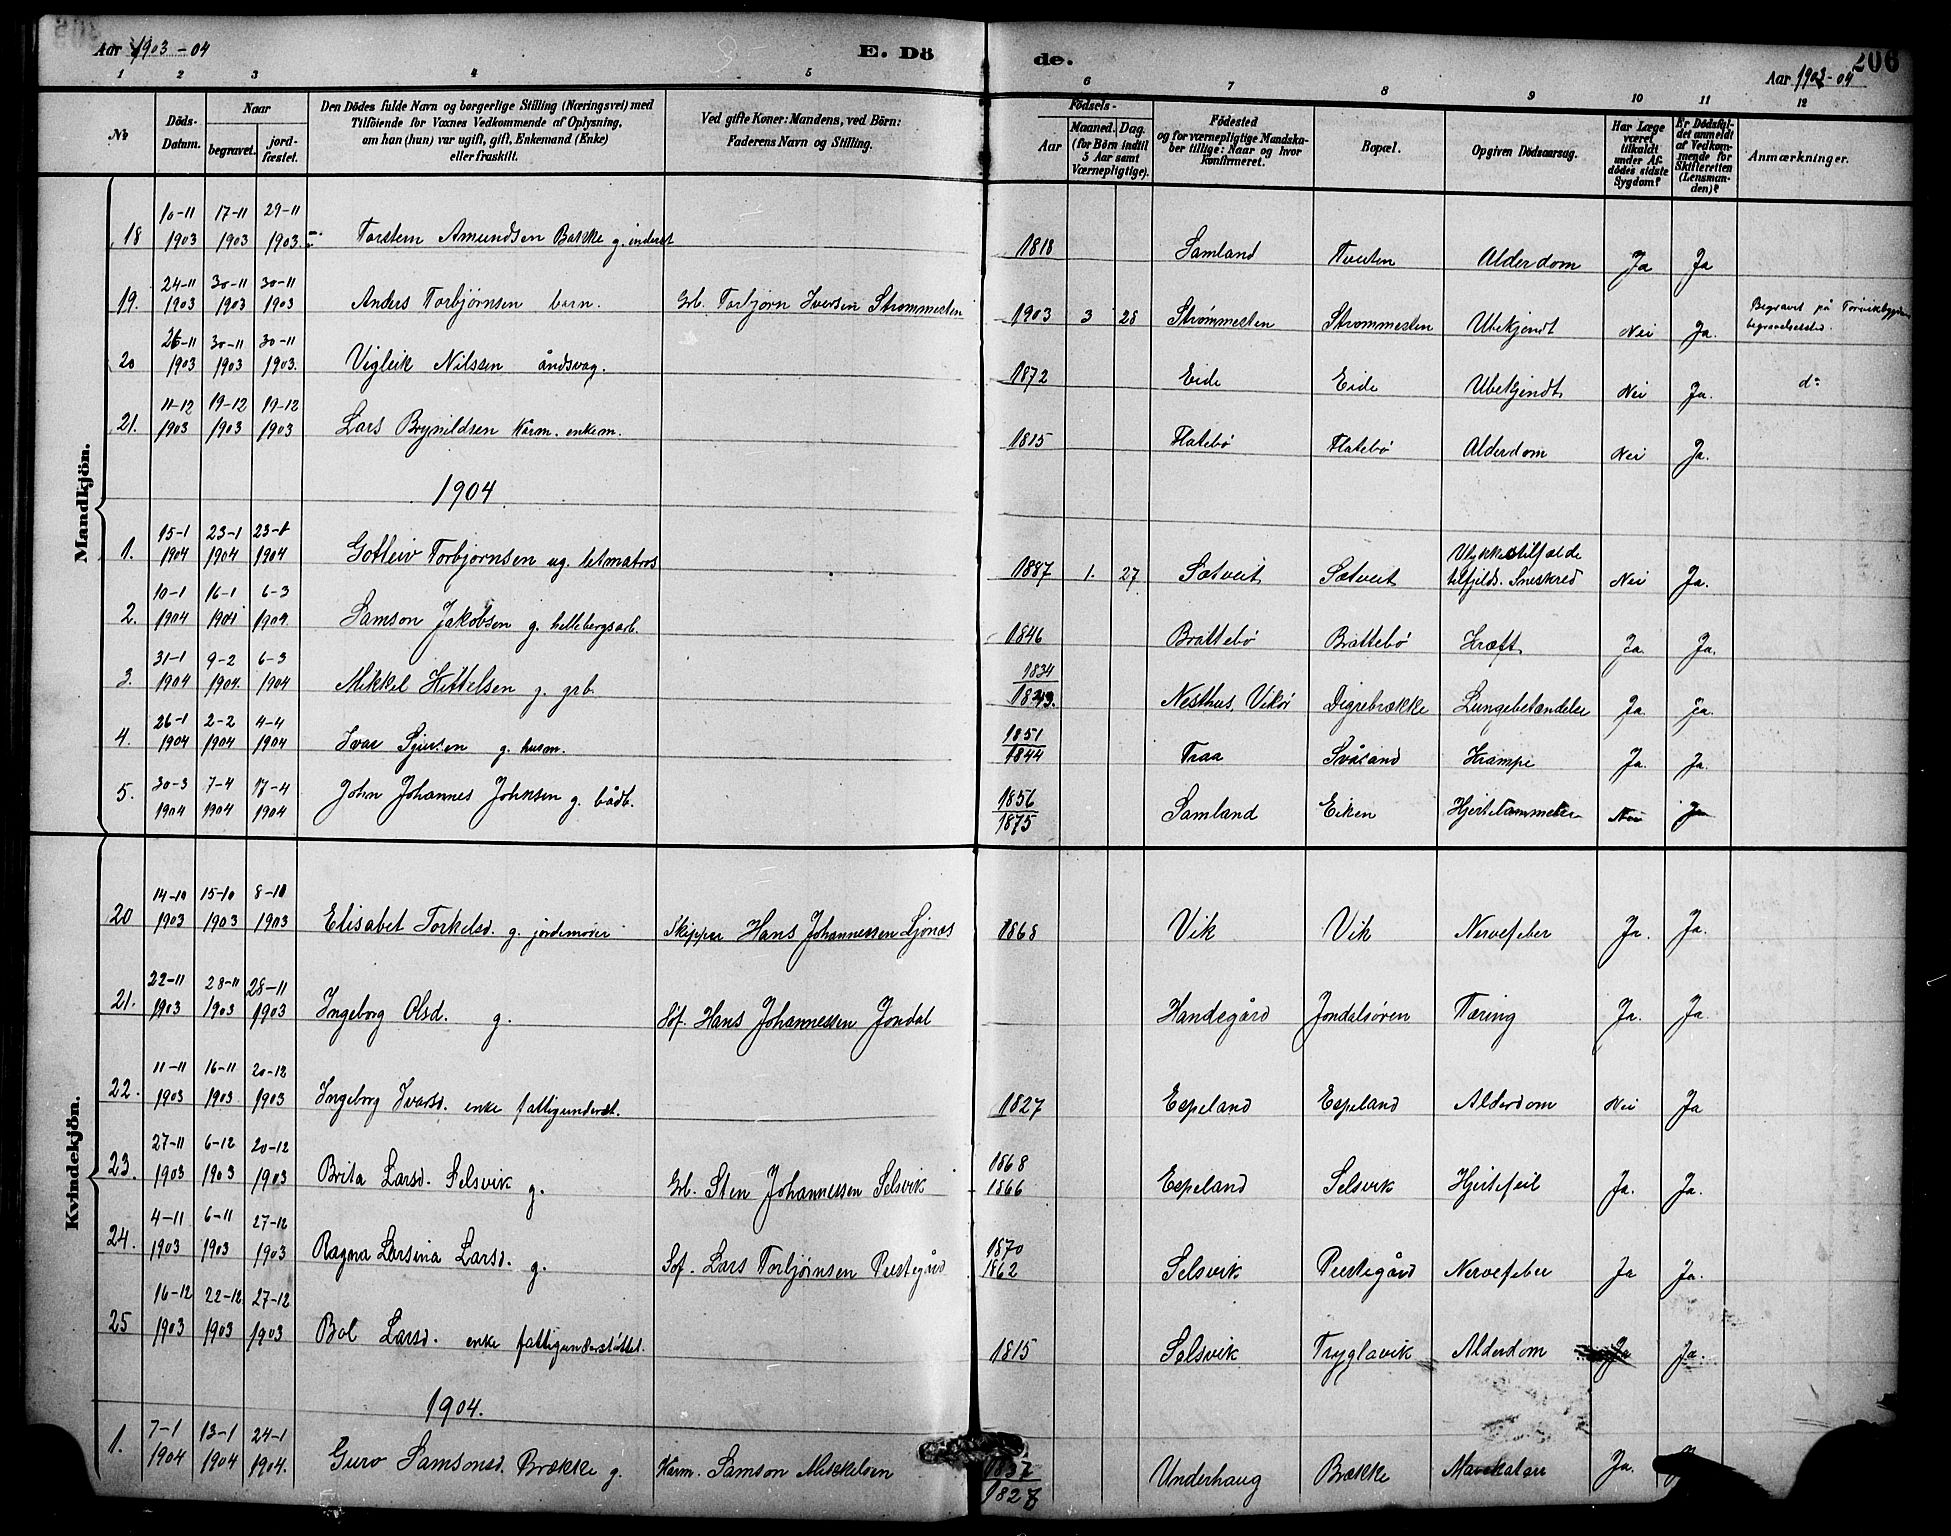 Aar 1903-04 E. Dö de. Aar 1903-04 206
1 2 3 4 5 6 7 8 9 10 11 12
No
Döds-Datum.
Naar
begravet. jord-fæstet.
Den Dödes fulde Navn og borgerlige Stilling (Næringsvei) med
Tilföiende för Vøxnes Vedkommende af Oplysning,
om han (hun) var ugift, gift, Enkemand (Enke)
eller fraskilt.
Ved gifte Koner: Mandens, ved Börn:
Faderens Navn og Stilling.
Födsels-
Aar Maaned. Dag.
(for Börn indtil
5 Aar samt
Værnepligtige).
Födested
og for værnepligtige Mandska-
ber tillige: Naar og hvor
konfirmeret.
Bopæl.
Opgiven Dödsaarsag.
Har Læge
været
tilkaldt
under Af-
dödes sidste
Sygdom?
Er Dödsfal-
det anmeldt
af Vedkom-
mende for
Skifteretten
(Lensman-
den)?
Anmærkninger.
Mandkjön.
18 10-11 1903 17-11 1903 29-11 1903 Torstein Amundsen Bakke g. inderst 1818 Samland Tveiten Alderdom Ja Ja
19. 24-11 1903 30-11 1903 30-11 1903 Anders Torbjørnsen barn. Grb. Torbjørn Iversen Strømmesten 1903 3 28 Strømmesten Strømmesten Ubekjendt Nei Ja. Begravet på
begravelsessted.
20 26-11 1903 30-11 1903 30-11 1903. Vigleik Nilssen åndsvag. 1872 Eide Eide Ubekjendt Nei Ja. do
21. 11-12 1903 19-12 1903 19-12 1903 Lars Brynildsen Karm. enkem. 1815 Flatebø Flatebø Alderdom Nei Ja.
1904
1. 15-1 1904 23-1 1904 23-1 1904 Gotleiv Torbjørnsen ug. letmatros 1887 1. 27 Sætveit Sætveit Ulykkestilfælde
tilfjelds. Sneskred Nei Ja.
2. 10-1 1904 16-1 1904 6-3 1904 Samson Jakobsen g. hellebergsarb. 1846 Brattebø Brattebø Kræft Ja. Ja.
3. 31-1 1904 9-2 1904. 6-3 1904 Mikkel Kittelsen g. grb. 1834 1843. Nesthus, Vikør Digrebrække Lungebetændelse Ja. Ja.
4. 26-1 1904 2-2 1904 4-4 1904 Ivar Sjursen g. husm. 1851 1844 Traa Svåsand Krampe Ja. Ja.
5. 30-3 1904 7-4 1904 17-4 1904 John Johannes Johnsen g. bådb. 1856 1875 Samland Eiken Nei Ja
Kvindekjön.
20 14-10 1903 15-10 1903 8-11 1903 Elisabet Torkelsd. g. jordemoder Skipper Hans Johannessen Ljonæs 1868 Vik Vik Nervefeber Ja. Ja.
21. 22-11 1903 28-11 1903 28-11 1903 Ingeborg Olsd. g. Sóf. Hans Johannessen Jondal Handegård Jondalsøren Tæring Ja. Ja
22. 11-11 1903 16-11 1903 20-12 1903 Ingeborg Ivarsd. enke fattigunderst. 1827 Espeland Espeland Alderdom Nei Ja
23. 27-11 1903 6-12 1903 20-12 1903 Brita Larsd. Selsvik g. Grb. Sten Johannessen Selsvik 1868 1866 Espeland Selsvik Hjertefeil Ja. Ja.
24. 4-11 1903 6-11 1903 27-12 1903 Ragna Larsina Larsd. g. Sóf. Lars Torbjørnsen Prestegård 1870 1862 Selsvik Prestegård Nervefeber Ja Ja.
25 16-12 1903 22-12 1903 27-12 1903 Bol Larsd. enke fattigunderstøttet. 1815 Selsvik Tryglavik Alderdom Ja Ja.
1904.
1. 7-1 1904 13-1 1904 24-1 1904. Guro Samsonsd. Brække g. Karm. Samson Mikkelsen 1837 1828 Underhaug Brække Mavekatar Ja.